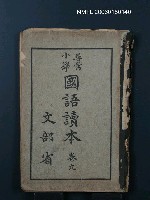 NMTL20030150140
尋常
小學
國語讀本 卷九
文部省